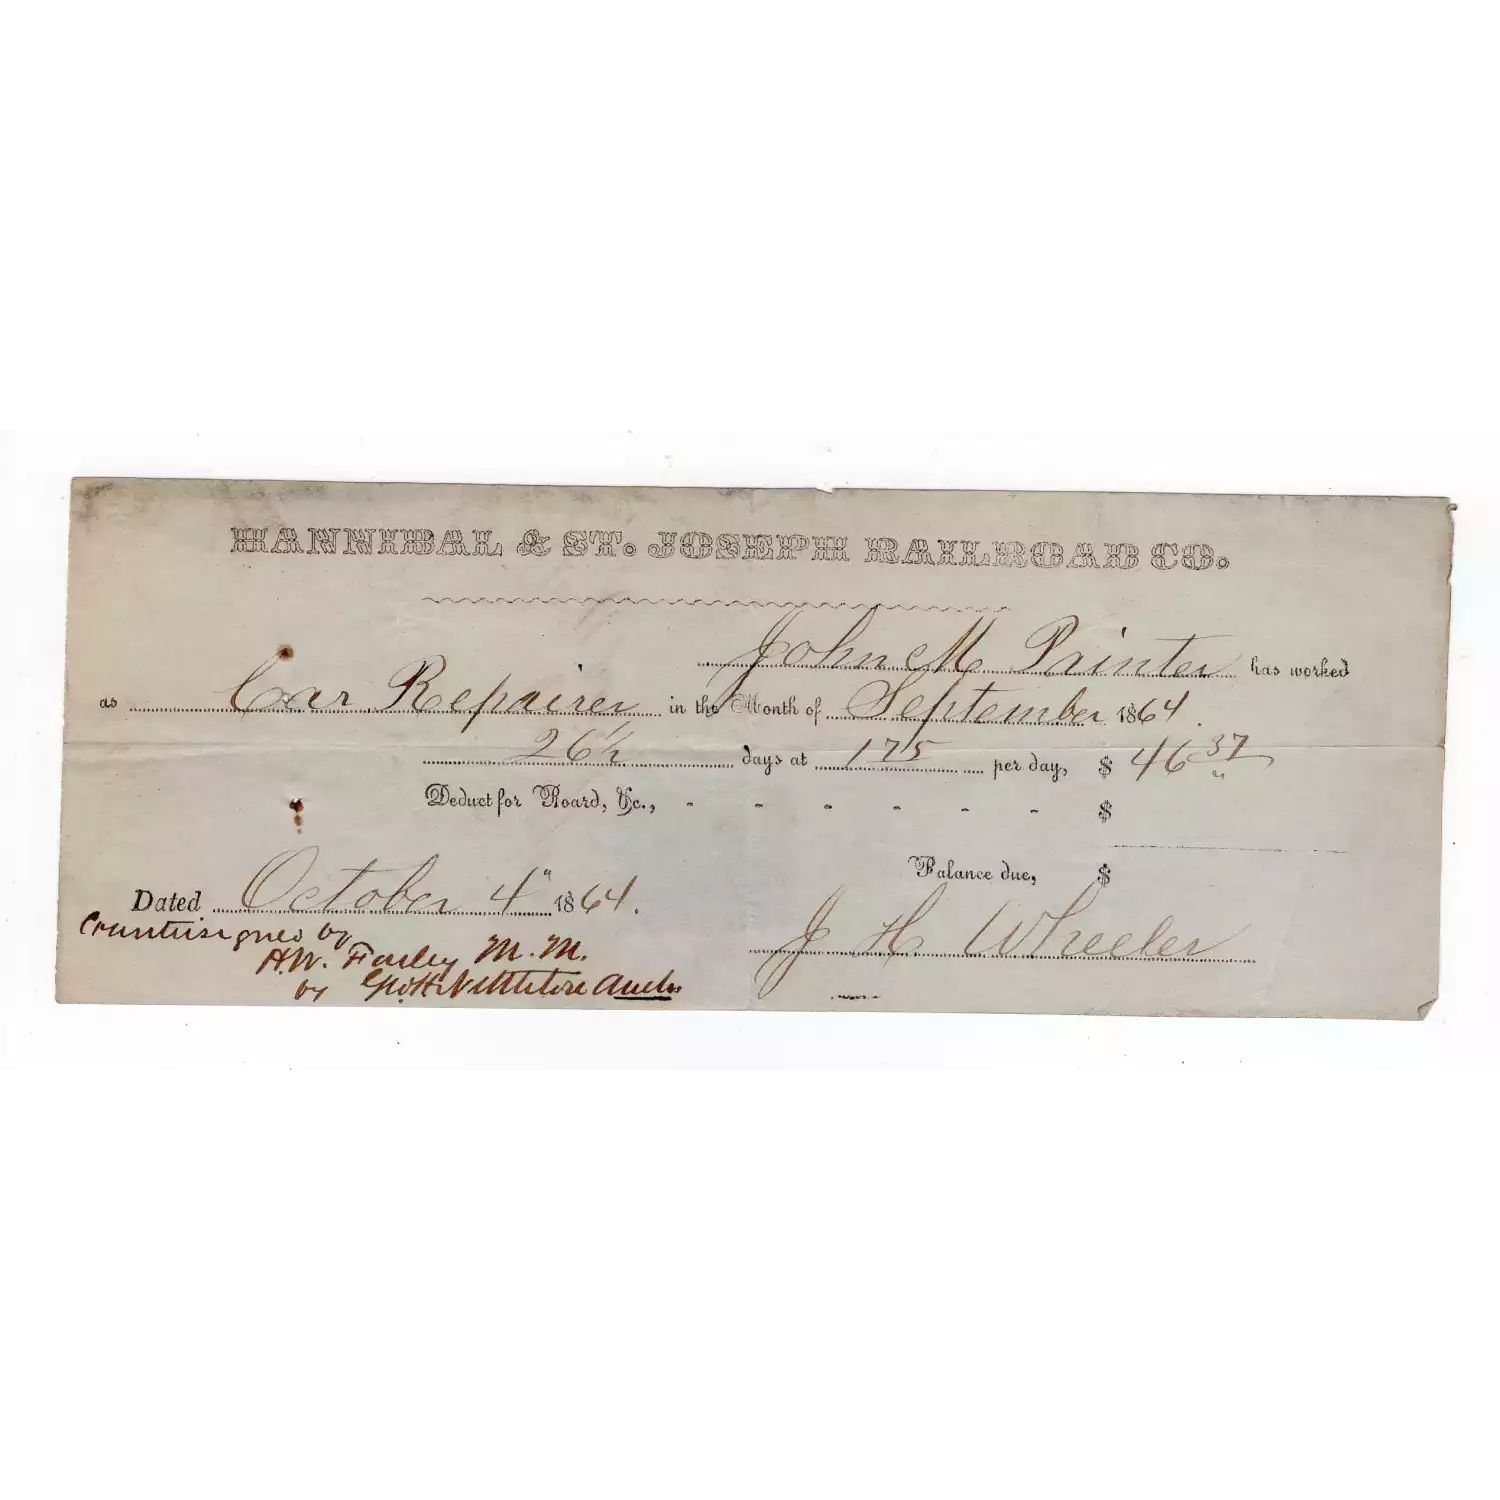 HANNIBAL & ST. JOSEPH RAILROAD CO.
John M Painter has worked
as Car Repairer in the Month of September 1864.
26½ days at 1 75 per day, $ 46 37
Deduct for Board, &c., - - - - - - $
Balance due, $
Dated October 4" 1864.
Countersigned by
J H Wheeler
H.W. Farley M.M.
by Geo. H. Nettleton